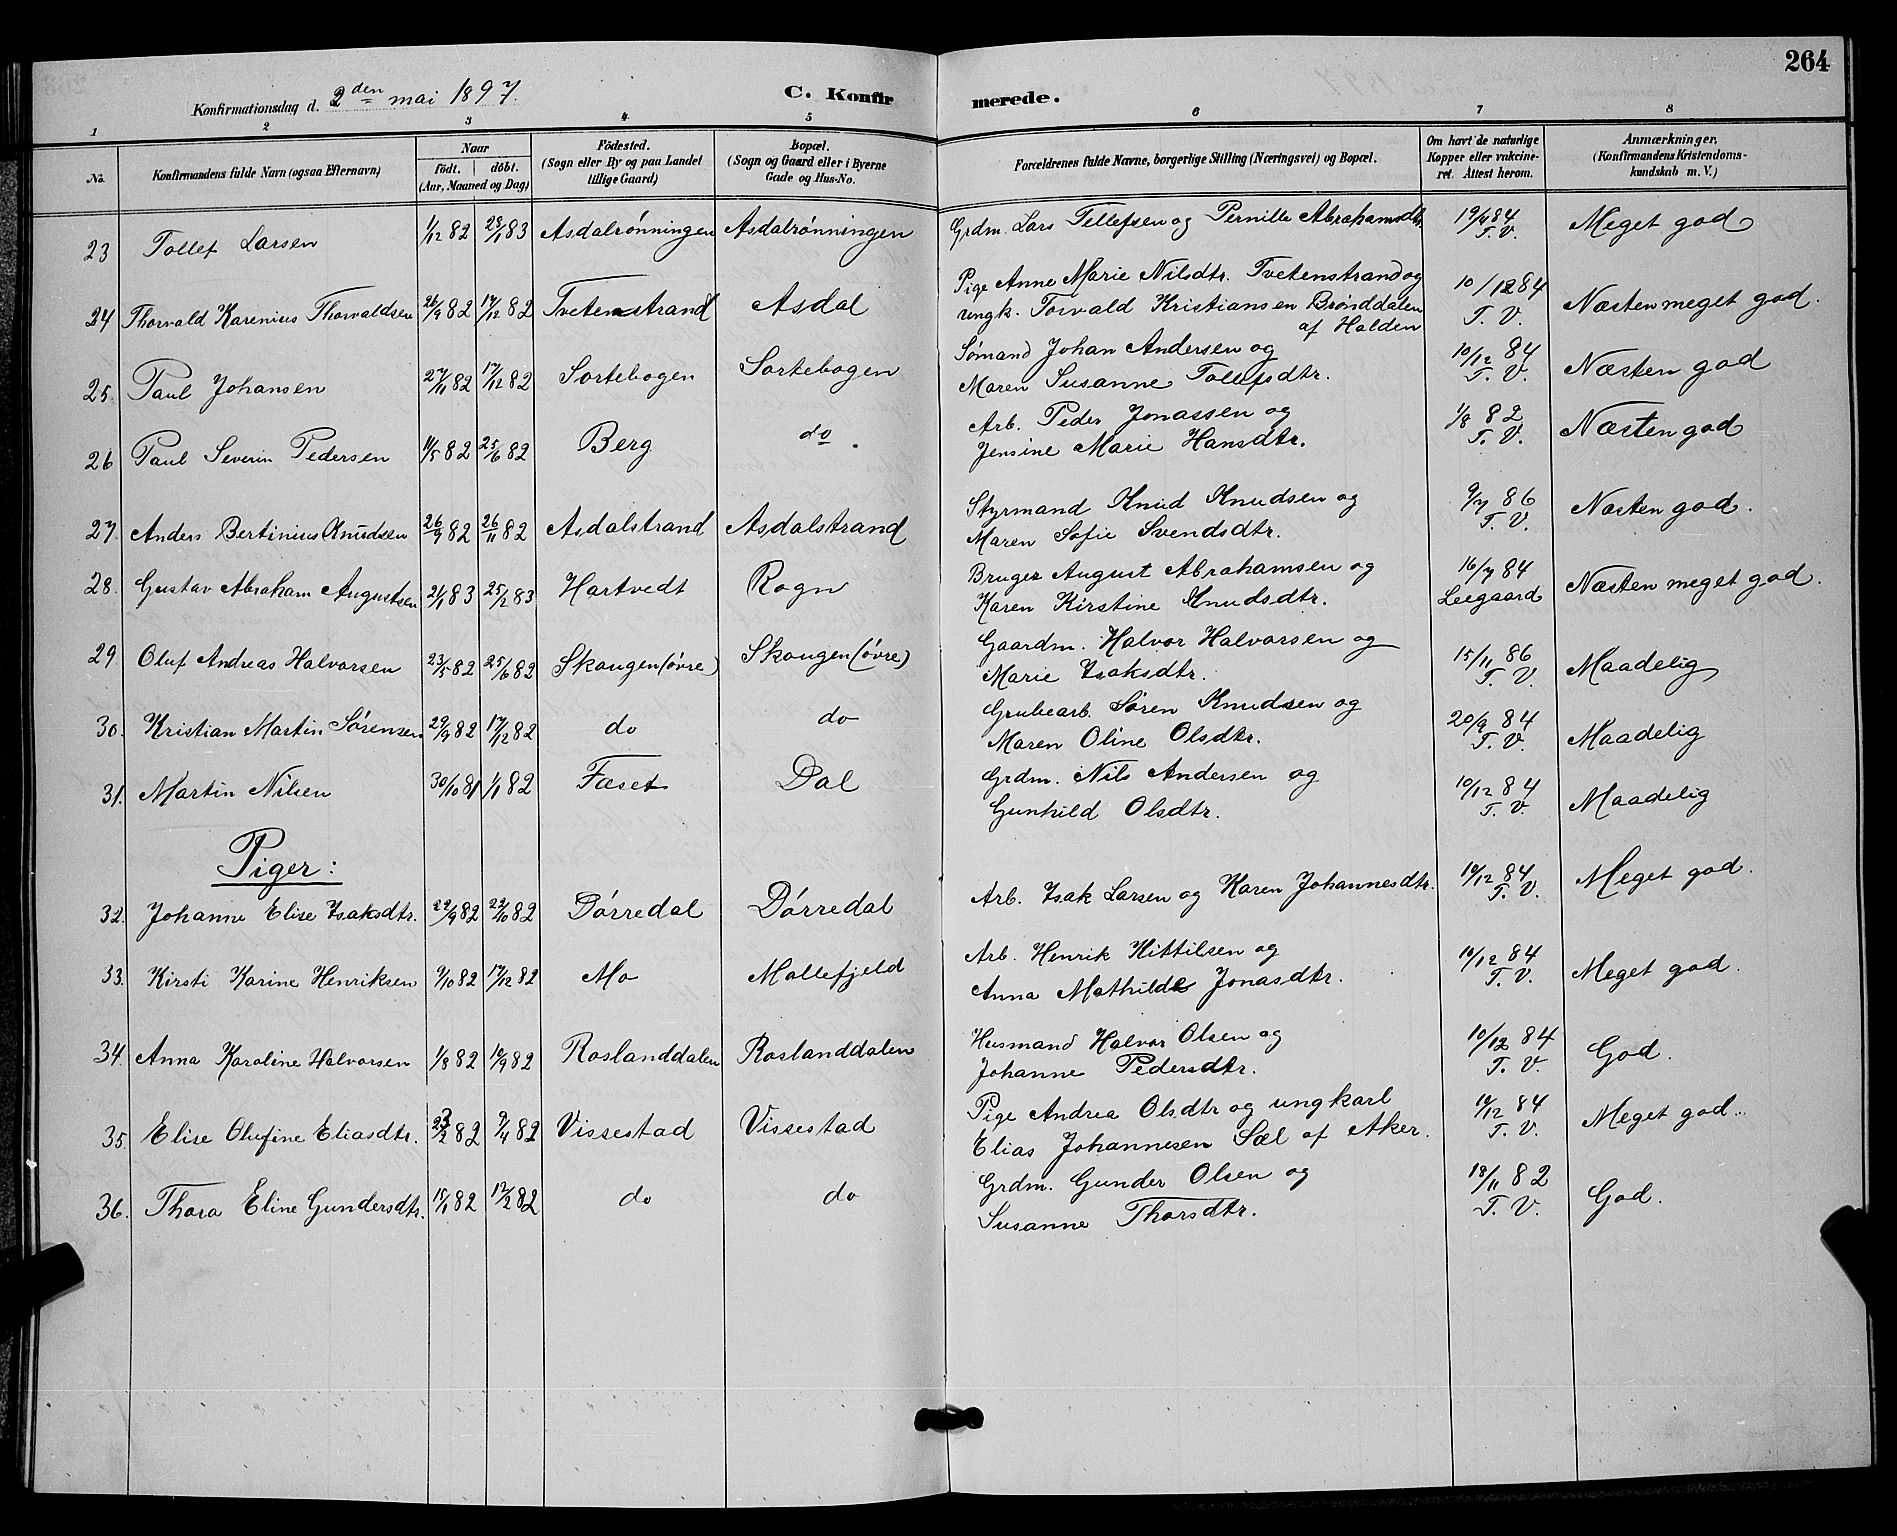 264
Konfirmationsdag d. 2den mai 1897. C. Konfirmerede.
1 2 3 4 5 6 7 8
No. Konfirmandens fulde Navn (ogsaa Efternavn) Naar födt. döbt. (Aar, Maaned og Dag) Födested. (Sogn eller By og paa Landet tillige Gaard) Bopæl. (Sogn og Gaard eller i Byerne Gade og Hus-No. Forældrenes fulde Navne, borgerlige Stilling (Næringsvei) og Bopæl. Om havt de naturlige Kopper eller vakcineret. Attest herom. Anmærkninger. (Konfirmandens Kristendomskundskab m. V.)
23 Tollef Larsen 1/12 82 28/1 83 Asdalrønningen Asdalrønningen Grdm. Lars Tellefsen og Pernille Abrahamsdtr. 19/4 84 T. V. Meget god
24 Thorvald Karenius Thorvaldsen 26/9 82 17/12 82 Tvetenstrand Asdal Pige Anne Marie Nilsdtr. Tvetenstrand og
ungk. Torvald Kristiansen Brønddalen af Halden 10/12 84 T. V. Næsten meget god.
25. Paul Johansen 27/11 82 17/12 82 Sortebogen Sortebogen Sømand Johan Andersen og
Maren Susanne Tollefsdtr. 10/12 84 T. V. Næsten god
26 Paul Severin Pedersen 11/5 82 25/6 82 Berg do. Arb. Peder Jonassen og
Jensine Marie Hansdtr. 1/8 82 T. V. Næsten god
27. Anders Bertinius Knudsen 26/9 82 26/11 82 Asdalstrand Asdalstrand Styrmand Knud Knudsen og
Maren Sofie Svendsdtr. 9/7 86 T. V. Næsten god.
28. Gustav Abraham Augustsen 21/1 83 25/2 83 Hartvedt Rogn Bruger August Abrahamsen og
Karen Kirstine Knudsdtr. 16/7 84 Leegaard Næsten meget god.
29. Oluf Andreas Halvorsen 23/5 82 25/6 82 Skougen (øvre) Skougen (øvre) Gaardm. Halvor Halvorsen og
Marie Isaksdtr. 15/11 86 T. V. Maadelig
30. Kristian Martin Sørensen 29/9 82 17/12 82 do do Grubearb. Søren Knudsen og
Maren Oline Olsdtr. 20/9 84 T. V. Maadelig
31. Martin Nilsen 30/10 81 1/1 82 Fæset Dal Grdm. Nils Andersen og
Gunhild Olsdtr. 10/12 84 T. V. Maadelig
Piger:
32. Johanne Elise Isaksdtr. 22/9 82 22/10 82 Dørredal Dørredal Arb. Isak Larsen og Karen Johannesdtr. 10/12 84 T. V. Meget god.
33. Kirsti Karine Henriksen 9/10 82 17/12 82 Mo Mollefjeld Arb. Henrik Kittilsen og
Anna Mathilde Jonasdtr. 10/12 84 T. V. Meget god.
34. Anna Karoline Halvorsen 1/8 82 10/9 82 Roslanddalen Roslanddalen Husmand Halvor Olsen og
Johanne Pedersdtr. 10/12 84 T. V. God.
35. Elise Olufine Eliasdtr. 23/2 82 9/4 82 Vissestad Vissestad Pige Andrea Olsdtr og ungkarl
Elias Johannesen Sæl af Aker. 10/12 84 T. V. Meget god.
36. Thora Eline Gundersdtr. 15/1 82 12/2 82 do do Grdm. Gunder Olsen og
Susanne Thorsdtr. 18/11 82 T. V. God.